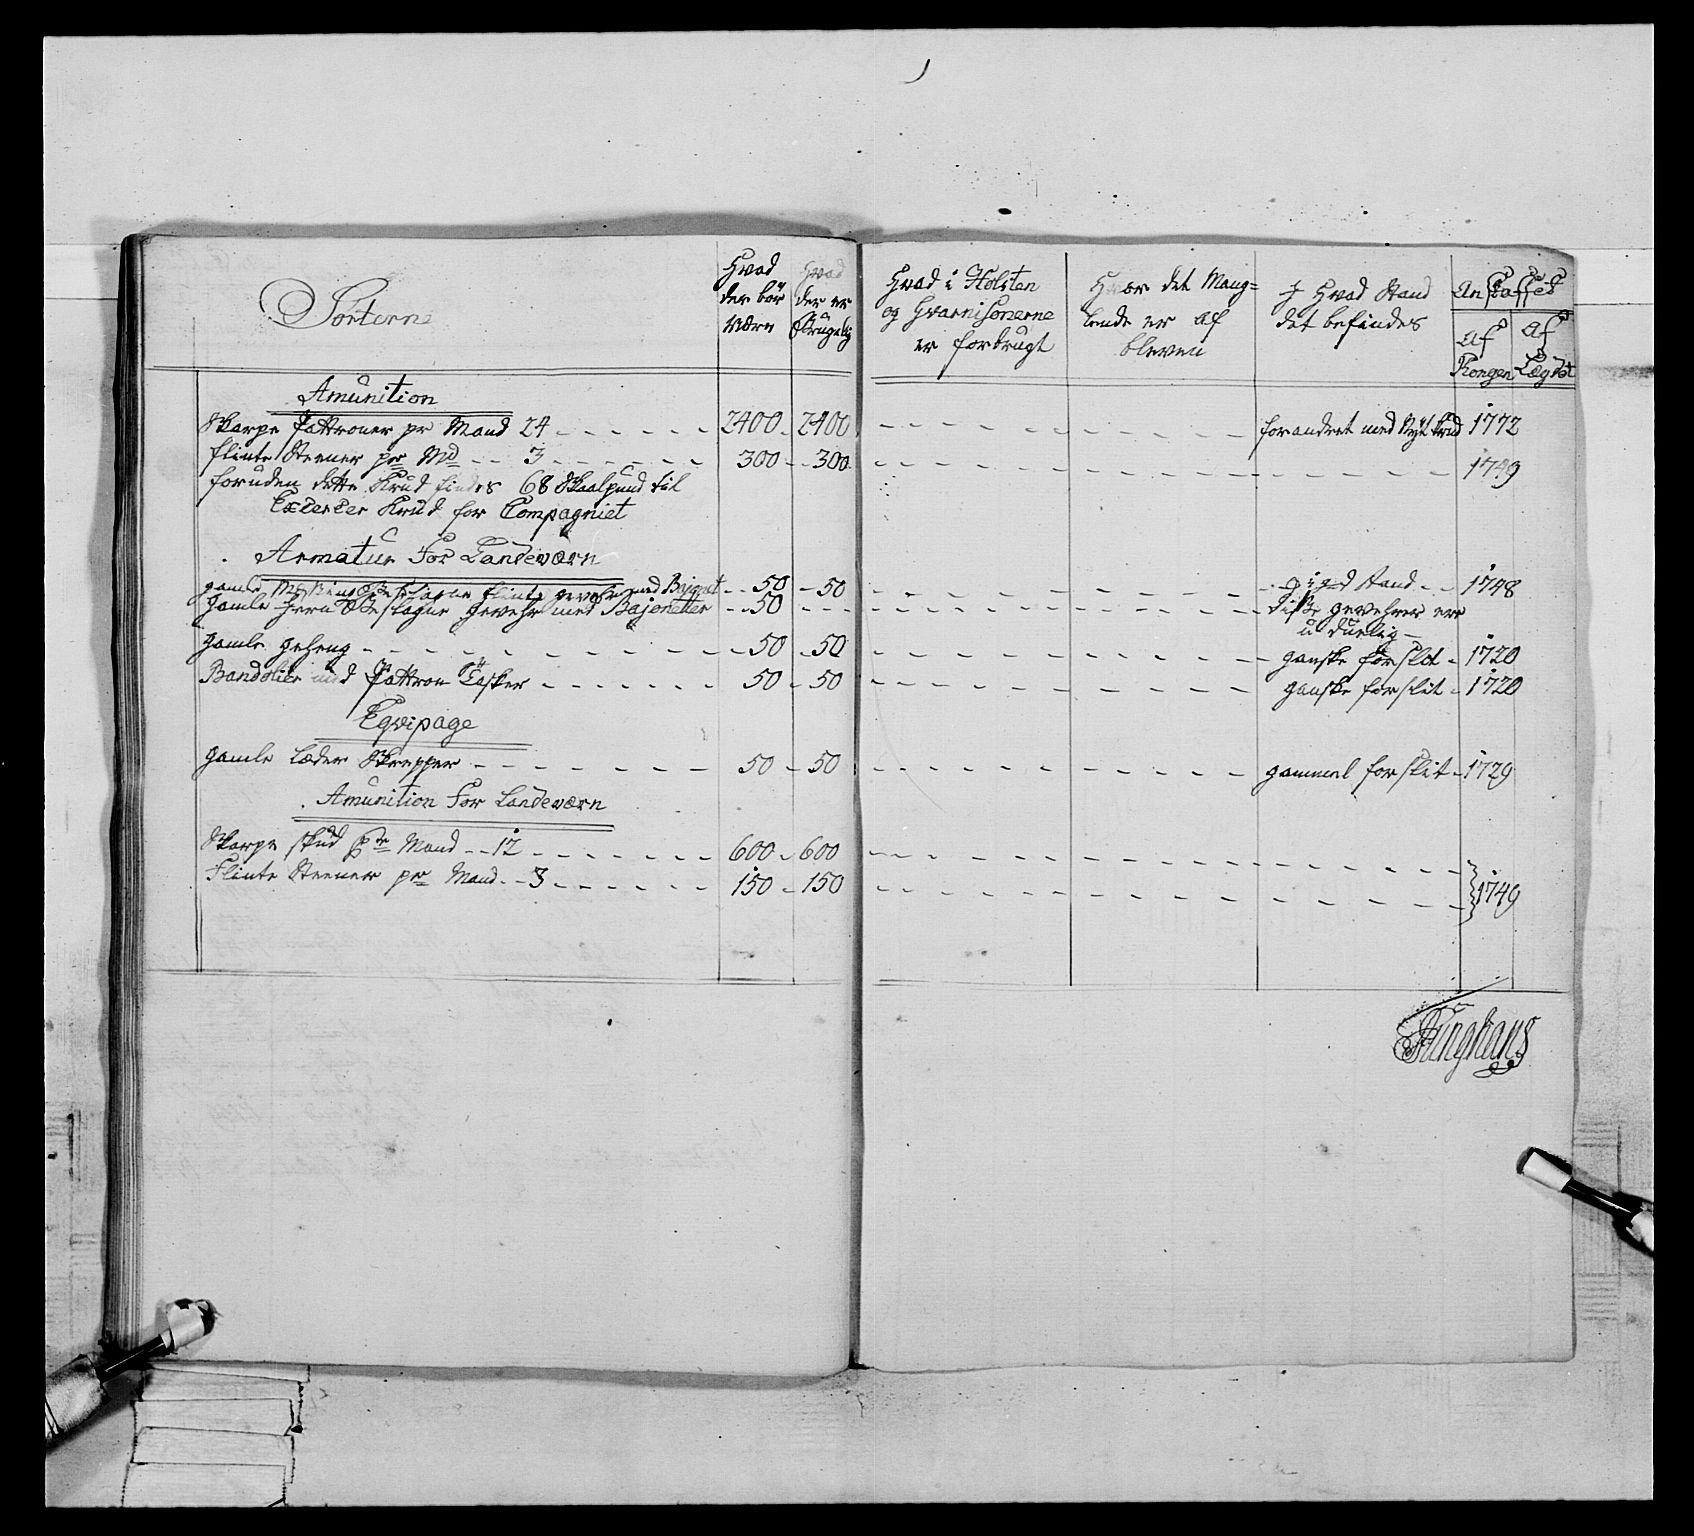 Sorterne
Hvad
der bör
være
Hvad
der er
Brugelig
Hvad i Holsten
og Gvarnisonerne
er forbrugt
Hvor det Mang=
lende er af
bleven
J Hvad Stand
det befindes
Anskaffed
af
Kongen
af
Lægdet
Amunition
Skarpe Pattroner pr Mand 24 2400 2400 forandret med Nyt Krud 1772
flinte Steener pr Md 3 300 300 1749
foruden dette Krud findes 68 Skaalpund til
Exercer Krud for Compagniet
Armatur For Landeværn
gamle Messing Beslagne flinte gevehr med Bajonet 50 50 J god Stand 1748
gamle Jern Beslagne gevehr med Bajonetter 50 diße gevehrer ere
u duelig
gamle geheng 50 50 ganske forslit 1720
Bandolier med Pattron Tasker 50 50 ganske forslit 1720
Eqvipage
gamle Læder Skrepper 50 50 gammel forslit 1729
Amunition For Landeværn
Skarpe skud pr Mand 12 600 600
Flinte Steener pr Mand 3 150 150 1749
Junghans